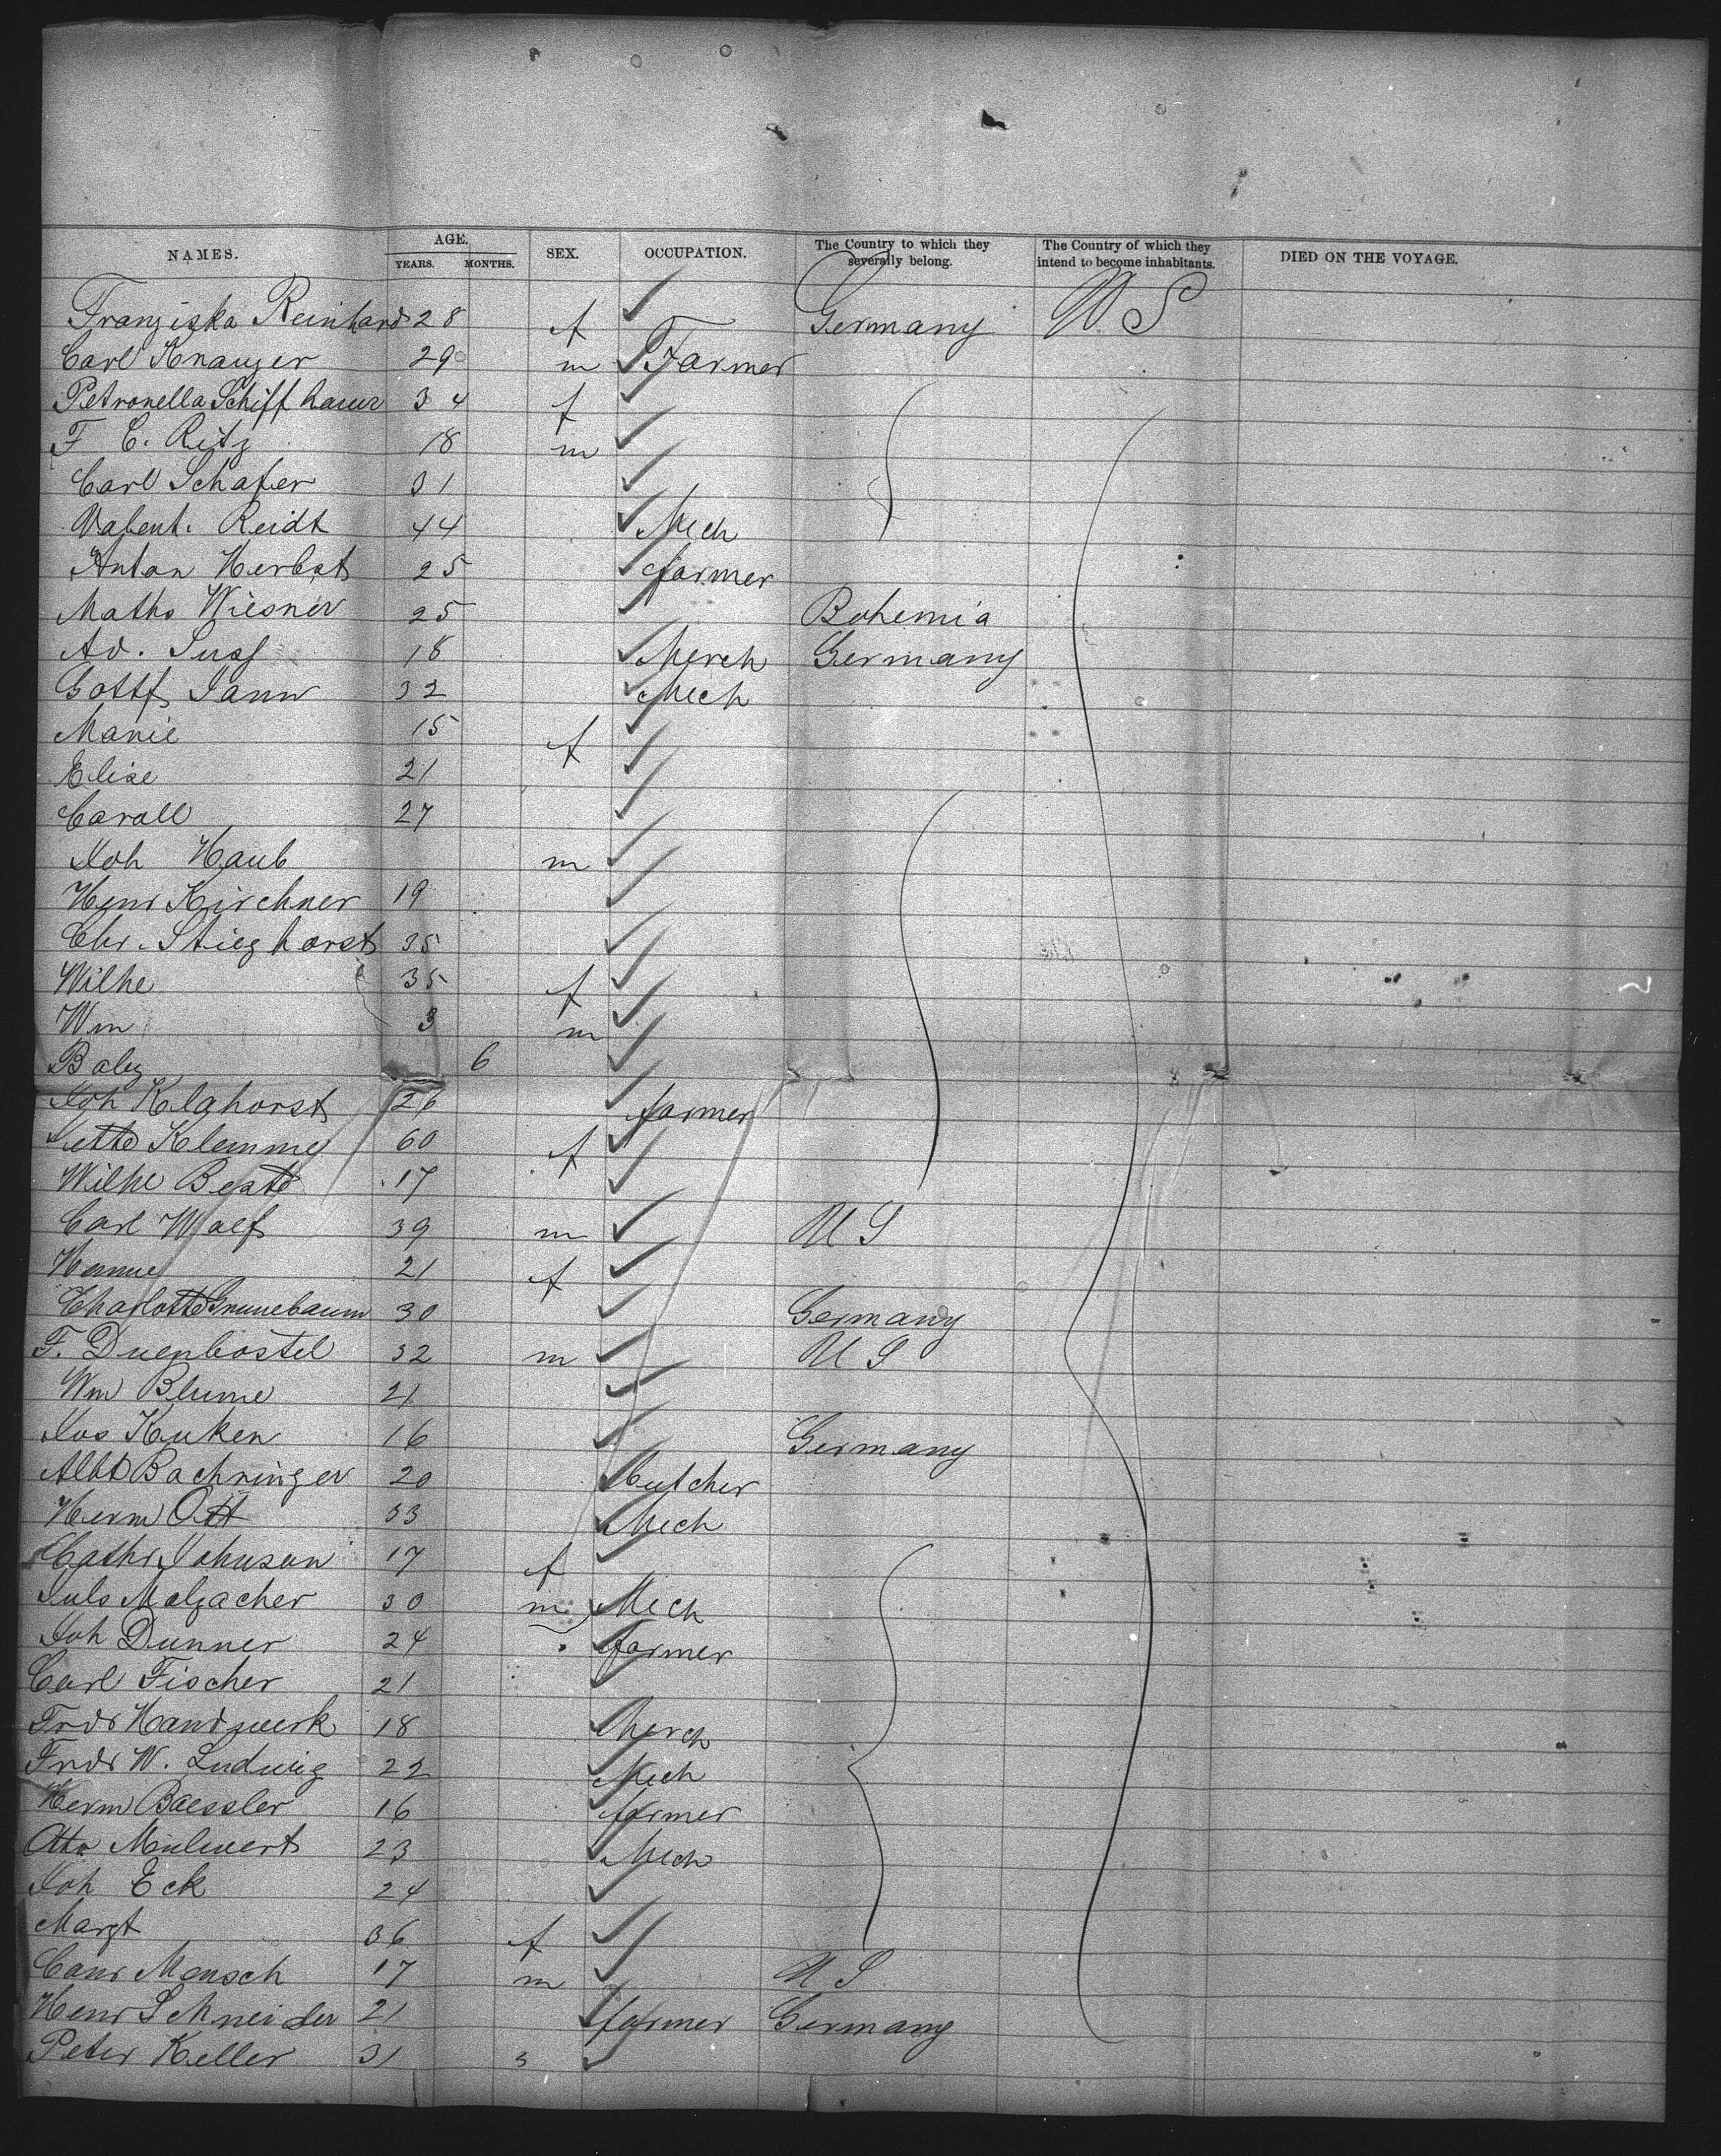 NAMES. AGE. YEARS. MONTHS. SEX. OCCUPATION. The Country to which they severally belong. The Country of which they intend to become inhabitants. DIED ON THE VOYAGE.
Franziska Reinhard 28 f Germany U S
Carl Knauzer 29 m Farmer
Petronella Schiffhauer 34 f
F C. Ritz 18 m
Carl Schafer 31
Valent. Reidt 44 Mech
Anton Herbst 25 farmer
Maths Wiesner 25 Bohemia
Ad. 18 Merch Germany
Gottf 32 Mech
Marie 15 f
Elise 21
Caroll 27
Joh Haub m
Henr Kirchner 19
Chr. Stieghorst 35
Wilhe 35 f
Wm 3 m
Baby 6
Joh Klahorst 26 farmer
Jette Klemme 60 f
Wilhe Beate 17
Carl Wolf 39 m U S
Hanne 21 f
Charlotte Grunebaum 30 Germany
F. Duenbostel 32 m U S
Wm Blume 21
Jos Kuken 16 Germany
Albt Bachringer 20 butcher
Herm Ott 33 Mech
Cathr Johnson 17 f
Juls Malzacher 30 m Mech
Joh Dunner 24 farmer
Carl Fischer 21
Frdr Handwerk 18 Merch
Frdr W. Ludwig 22 Mech
Herm Baessler 16 farmer
Otto 23 Mech
Joh Eck 24
Margt 36 f
Mensch 17 m U S
Henr Schneider 21 farmer Germany
Peter Keller 31